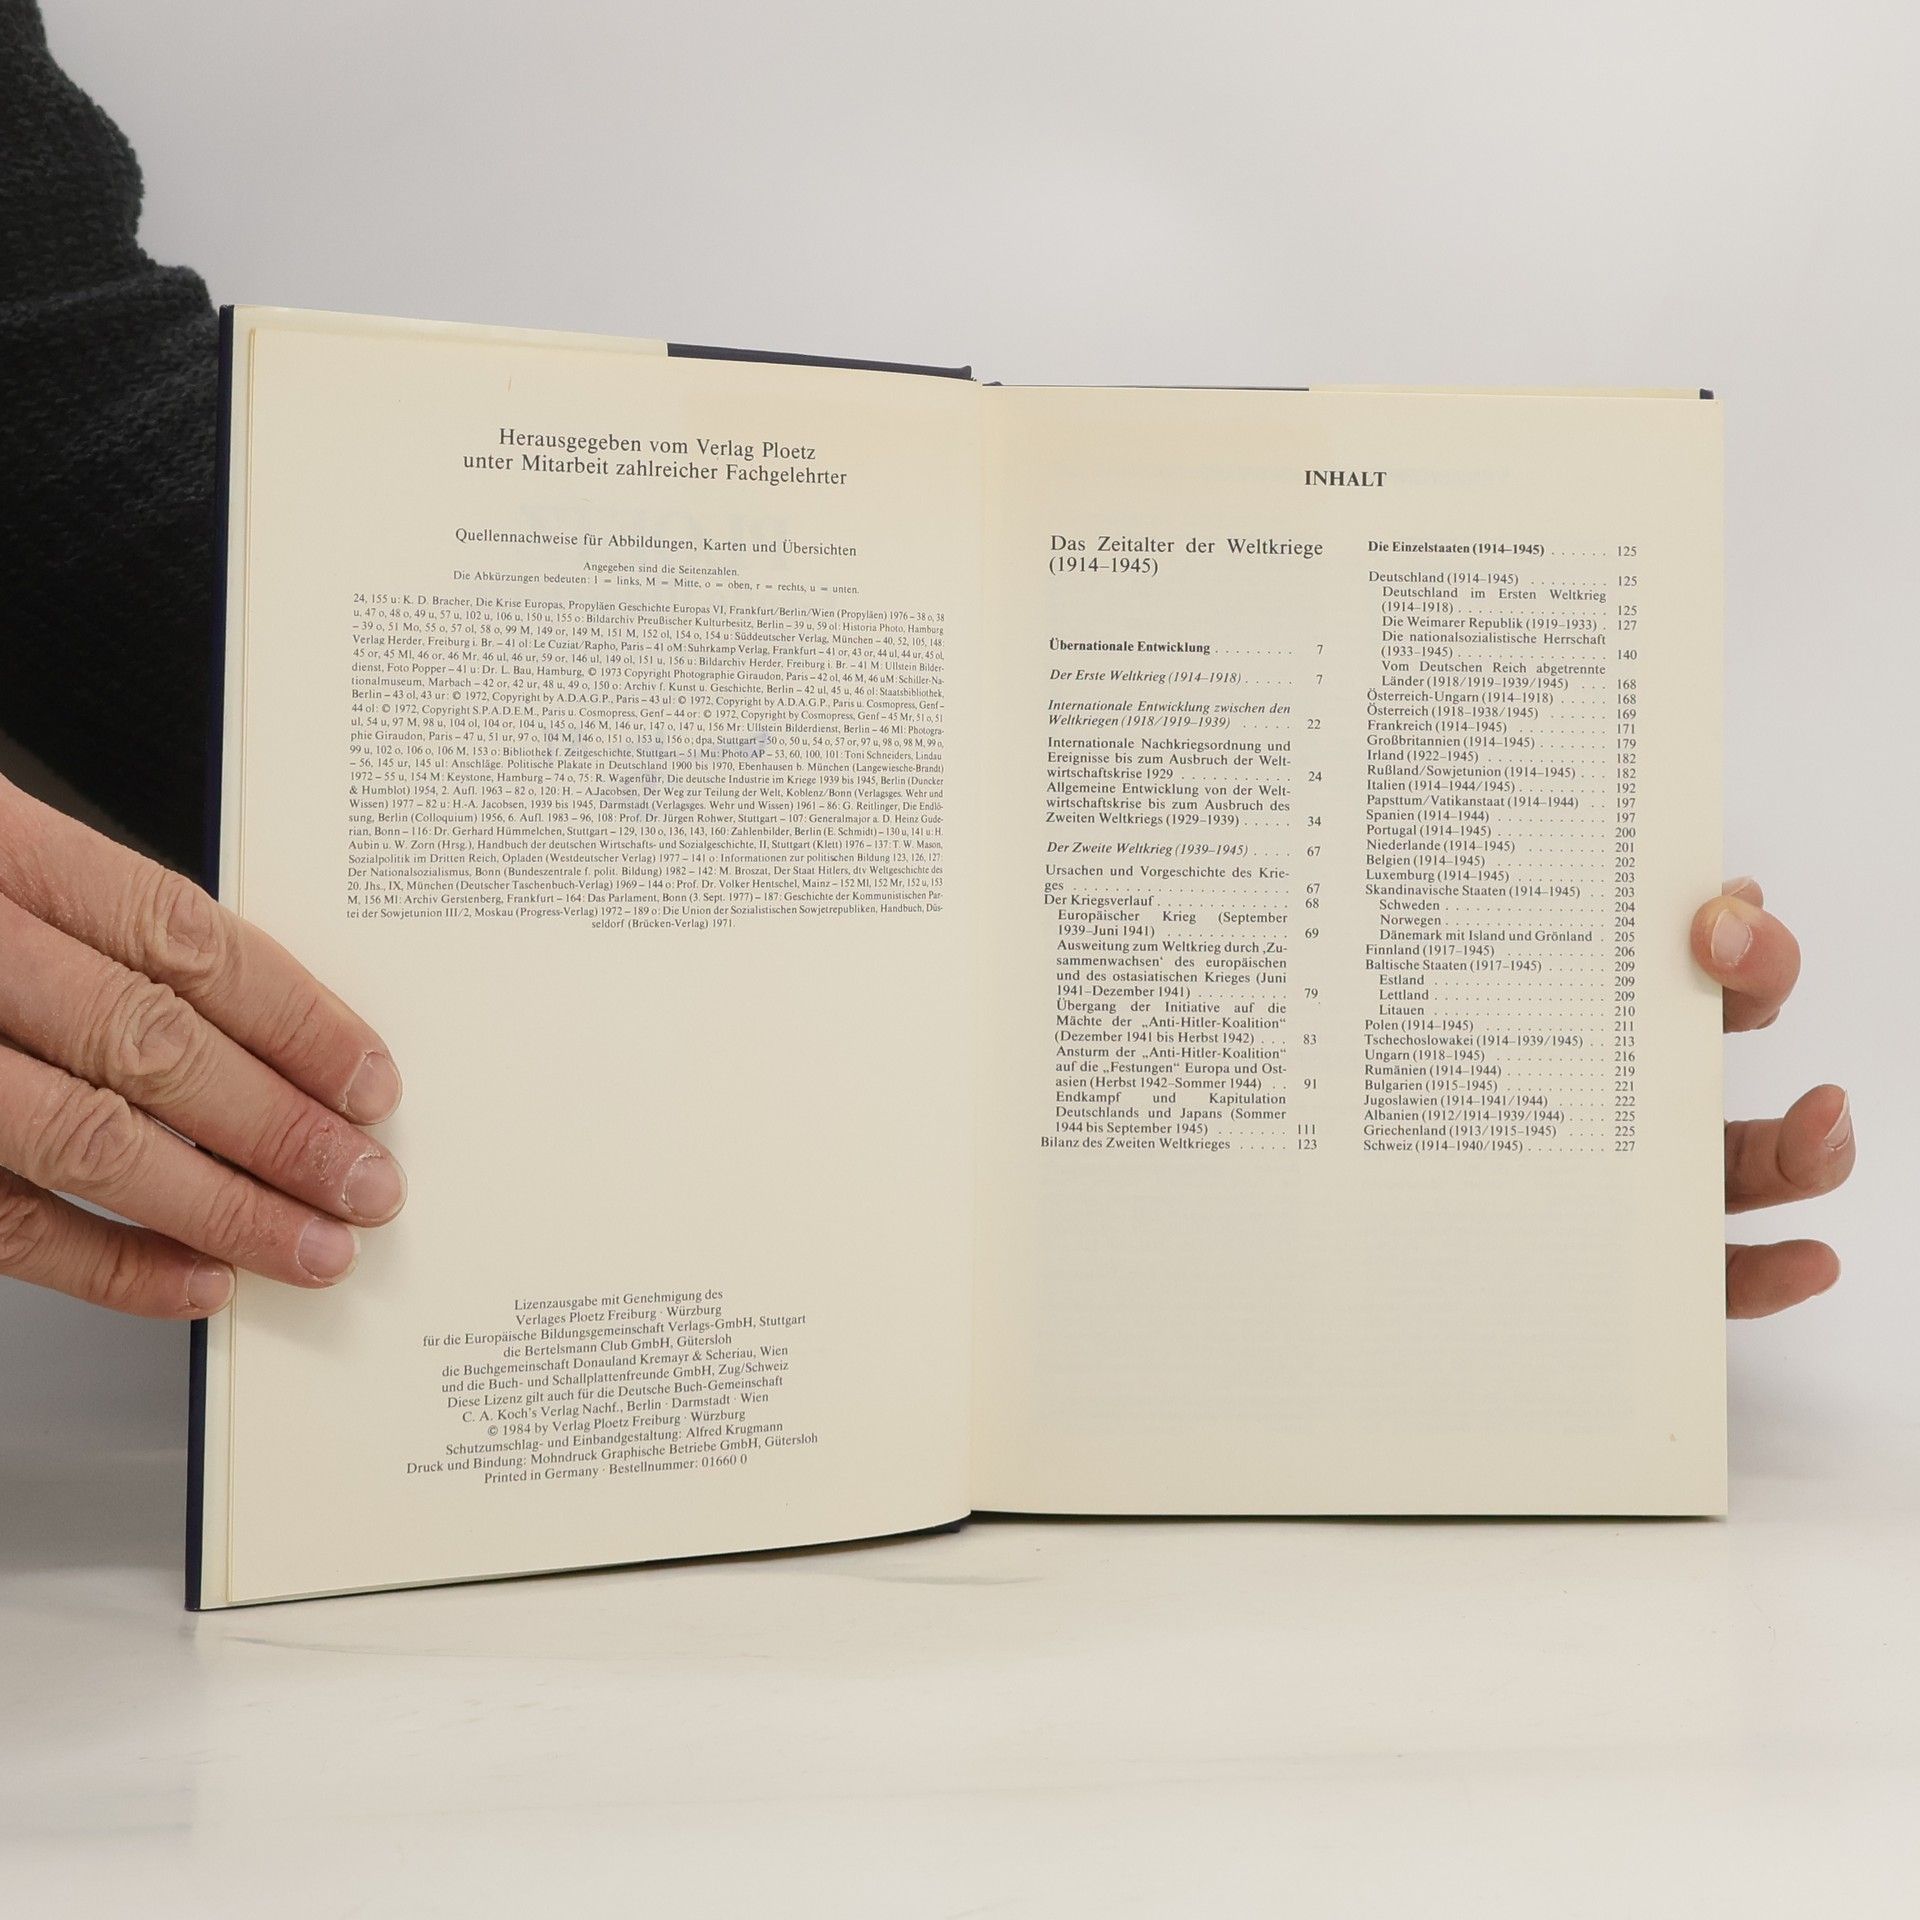 Herausgegeben vom Verlag Ploetz
unter Mitarbeit zahlreicher Fachgelehrter
Quellennachweise für Abbildungen, Karten und Übersichten
Angegeben sind die Seitenzahlen.
Die Abkürzungen bedeuten: l = links, M = Mitte, o = oben, r = rechts, u = unten.
24, 155 u: K. D. Bracher, Die Krise Europas, Propyläen Geschichte Europas VI, Frankfurt/Berlin/Wien (Propyläen) 1976 – 38 o, 38
u, 47 o, 48 o, 49 u, 57 u, 102 u, 106 u, 150 u, 155 o: Bildarchiv Preußischer Kulturbesitz, Berlin – 39 u, 59 ol: Historia Photo, Hamburg
– 39 o, 51 Mo, 55 o, 57 ol, 58 o, 99 M, 149 or, 149 M, 151 M, 152 ol, 154 o, 154 u: Süddeutscher Verlag, München – 40, 52, 105, 148:
Verlag Herder, Freiburg i. Br. – 41 ol: Le Cuziat/Rapho, Paris – 41 oM: Suhrkamp Verlag, Frankfurt – 41 or, 43 or, 44 ul, 44 ur, 45 ol,
45 or, 45 Ml, 46 or, 46 Mr, 46 ul, 46 ur, 59 or, 146 ul, 149 ol, 151 u, 156 u: Bildarchiv Herder, Freiburg i. Br. – 41 M: Ullstein Bilder-
dienst, Foto Popper – 41 u: Dr. L. Bau, Hamburg, © 1973 Copyright Photographie Giraudon, Paris – 42 ol, 46 M, 46 uM: Schiller-Na-
tionalmuseum, Marbach – 42 or, 42 ur, 48 u, 49 o, 150 o: Archiv f. Kunst u. Geschichte, Berlin – 42 ul, 45 u, 46 ol: Staatsbibliothek,
Berlin – 43 ol, 43 ur: © 1972, Copyright by A.D.A.G.P., Paris – 43 ul: © 1972, Copyright by A.D.A.G.P., Paris u. Cosmopress, Genf –
44 ol: © 1972, Copyright S.P.A.D.E.M., Paris u. Cosmopress, Genf – 44 or: © 1972, Copyright by Cosmopress, Genf – 45 Mr, 51 o, 51
ul, 54 u, 97 M, 98 u, 104 ol, 104 or, 104 u, 145 o, 146 M, 146 ur, 147 o, 147 u, 156 Mr: Ullstein Bilderdienst, Berlin – 46 Ml: Photogra-
phie Giraudon, Paris – 47 u, 51 ur, 97 o, 104 M, 146 o, 151 o, 153 u, 156 o; dpa, Stuttgart – 50 o, 50 u, 54 o, 57 or, 97 u, 98 o, 98 M, 99 o,
99 u, 102 o, 106 o, 106 M, 153 o: Bibliothek f. Zeitgeschichte, Stuttgart – 51 Mu: Photo AP – 53, 60, 100, 101: Toni Schneiders, Lindau
– 56, 145 ur, 145 ul: Anschläge. Politische Plakate in Deutschland 1900 bis 1970, Ebenhausen b. München (Langewiesche-Brandt)
1972 – 55 u, 154 M: Keystone, Hamburg – 74 o, 75: R. Wagenführ, Die deutsche Industrie im Kriege 1939 bis 1945, Berlin (Duncker
& Humblot) 1954, 2. Aufl. 1963 – 82 o, 120: H. – A.Jacobsen, Der Weg zur Teilung der Welt, Koblenz/Bonn (Verlagsges. Wehr und
Wissen) 1977 – 82 u: H.-A. Jacobsen, 1939 bis 1945, Darmstadt (Verlagsges. Wehr und Wissen) 1961 – 86: G. Reitlinger, Die Endlö-
sung, Berlin (Colloquium) 1956, 6. Aufl. 1983 – 96, 108: Prof. Dr. Jürgen Rohwer, Stuttgart – 107: Generalmajor a. D. Heinz Gude-
rian, Bonn – 116: Dr. Gerhard Hümmelchen, Stuttgart – 129, 130 o, 136, 143, 160: Zahlenbilder, Berlin (E. Schmidt) – 130 u, 141 u: H.
Aubin u. W. Zorn (Hrsg.), Handbuch der deutschen Wirtschafts- und Sozialgeschichte, II, Stuttgart (Klett) 1976 – 137: T. W. Mason,
Sozialpolitik im Dritten Reich, Opladen (Westdeutscher Verlag) 1977 – 141 o: Informationen zur politischen Bildung 123, 126, 127:
Der Nationalsozialismus, Bonn (Bundeszentrale f. polit. Bildung) 1982 – 142: M. Broszat, Der Staat Hitlers, dtv Weltgeschichte des
20. Jhs., IX, München (Deutscher Taschenbuch-Verlag) 1969 – 144 o: Prof. Dr. Volker Hentschel, Mainz – 152 Ml, 152 Mr, 152 u, 153
M, 156 Ml: Archiv Gerstenberg, Frankfurt – 164: Das Parlament, Bonn (3. Sept. 1977) – 187: Geschichte der Kommunistischen Par-
tei der Sowjetunion III/2, Moskau (Progress-Verlag) 1972 – 189 o: Die Union der Sozialistischen Sowjetrepubliken, Handbuch, Düs-
seldorf (Brücken-Verlag) 1971.
Lizenzausgabe mit Genehmigung des
Verlages Ploetz Freiburg · Würzburg
für die Europäische Bildungsgemeinschaft Verlags-GmbH, Stuttgart
die Bertelsmann Club GmbH, Gütersloh
die Buchgemeinschaft Donauland Kremayr & Scheriau, Wien
und die Buch- und Schallplattenfreunde GmbH, Zug/Schweiz
Diese Lizenz gilt auch für die Deutsche Buch-Gemeinschaft
C. A. Koch's Verlag Nachf., Berlin · Darmstadt · Wien
© 1984 by Verlag Ploetz Freiburg · Würzburg
Schutzumschlag- und Einbandgestaltung: Alfred Krugmann
Druck und Bindung: Mohndruck Graphische Betriebe GmbH, Gütersloh
Printed in Germany · Bestellnummer: 01660 0
INHALT
Das Zeitalter der Weltkriege
(1914–1945)
Übernationale Entwicklung . . . . . . . . 7
Der Erste Weltkrieg (1914–1918) . . . . . 7
Internationale Entwicklung zwischen den
Weltkriegen (1918/1919–1939) . . . . . . 22
Internationale Nachkriegsordnung und
Ereignisse bis zum Ausbruch der Welt-
wirtschaftskrise 1929 . . . . . . . . . . . 24
Allgemeine Entwicklung von der Welt-
wirtschaftskrise bis zum Ausbruch des
Zweiten Weltkriegs (1929–1939) . . . . . 34
Der Zweite Weltkrieg (1939–1945) . . . . 67
Ursachen und Vorgeschichte des Krie-
ges . . . . . . . . . . . . . . . . . . . . . 67
Der Kriegsverlauf . . . . . . . . . . . . . 68
Europäischer Krieg (September
1939–Juni 1941) . . . . . . . . . . . . 69
Ausweitung zum Weltkrieg durch ‚Zu-
sammenwachsen‘ des europäischen
und des ostasiatischen Krieges (Juni
1941–Dezember 1941) . . . . . . . . . 79
Übergang der Initiative auf die
Mächte der „Anti-Hitler-Koalition“
(Dezember 1941 bis Herbst 1942) . . . 83
Ansturm der „Anti-Hitler-Koalition“
auf die „Festungen“ Europa und Ost-
asien (Herbst 1942–Sommer 1944) . . 91
Endkampf und Kapitulation
Deutschlands und Japans (Sommer
1944 bis September 1945) . . . . . . . 111
Bilanz des Zweiten Weltkrieges . . . . . 123
Die Einzelstaaten (1914–1945) . . . . . . 125
Deutschland (1914–1945) . . . . . . . . 125
Deutschland im Ersten Weltkrieg
(1914–1918) . . . . . . . . . . . . . . 125
Die Weimarer Republik (1919–1933) . 127
Die nationalsozialistische Herrschaft
(1933–1945) . . . . . . . . . . . . . . 140
Vom Deutschen Reich abgetrennte
Länder (1918/1919–1939/1945) . . . 168
Österreich-Ungarn (1914–1918) . . . . . 168
Österreich (1918–1938/1945) . . . . . . 169
Frankreich (1914–1945) . . . . . . . . . 171
Großbritannien (1914–1945) . . . . . . . 179
Irland (1922–1945) . . . . . . . . . . . . 182
Rußland/Sowjetunion (1914–1945) . . . 182
Italien (1914–1944/1945) . . . . . . . . . 192
Papsttum/Vatikanstaat (1914–1944) . . 197
Spanien (1914–1944) . . . . . . . . . . . 197
Portugal (1914–1945) . . . . . . . . . . . 200
Niederlande (1914–1945) . . . . . . . . . 201
Belgien (1914–1945) . . . . . . . . . . . 202
Luxemburg (1914–1945) . . . . . . . . . 203
Skandinavische Staaten (1914–1945) . . 203
Schweden . . . . . . . . . . . . . . . . 204
Norwegen . . . . . . . . . . . . . . . . 204
Dänemark mit Island und Grönland . 205
Finnland (1917–1945) . . . . . . . . . . 206
Baltische Staaten (1917–1945) . . . . . . 209
Estland . . . . . . . . . . . . . . . . . 209
Lettland . . . . . . . . . . . . . . . . . 209
Litauen . . . . . . . . . . . . . . . . . 210
Polen (1914–1945) . . . . . . . . . . . . 211
Tschechoslowakei (1914–1939/1945) . . 213
Ungarn (1918–1945) . . . . . . . . . . . 216
Rumänien (1914–1944) . . . . . . . . . . 219
Bulgarien (1915–1945) . . . . . . . . . . 221
Jugoslawien (1914–1941/1944) . . . . . 222
Albanien (1912/1914–1939/1944) . . . . 225
Griechenland (1913/1915–1945) . . . . 225
Schweiz (1914–1940/1945) . . . . . . . . 227